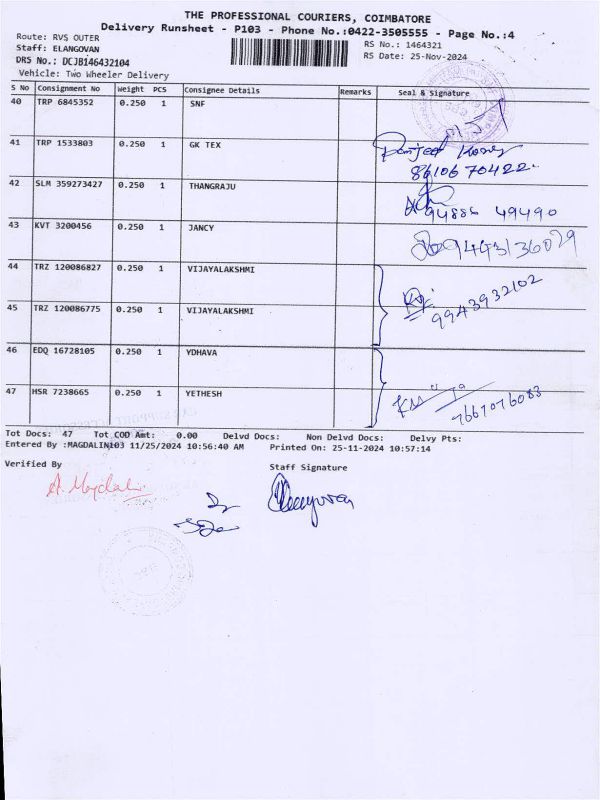 THE PROFESSIONAL COURIERS, COIMBATORE
Delivery Runsheet - P103 - Phone No.:0422-3505555 - Page No.:4
Route: RVS OUTER
RS No.: 1464321
Staff: ELANGOVAN
RS Date: 25-Nov-2024
DRS No.: DCJB146432104
Vehicle: Two Wheeler Delivery
S No Consignment No Weight PCS Consignee Details Remarks Seal & Signature
40 TRP 6845352 0.250 1 SNF
41 TRP 1533803 0.250 1 GK TEX
8610670422
42 SLM 359273427 0.250 1 THANGRAJU
94886 49490
43 KVT 3200456 0.250 1 JANCY
9443136029
44 TRZ 120086827 0.250 1 VIJAYALAKSHMI
9943932102
45 TRZ 120086775 0.250 1 VIJAYALAKSHMI
46 EDQ 16728105 0.250 1 YDHAVA
47 HSR 7238665 0.250 1 YETHESH
7667076083
Tot Docs: 47 Tot COD Amt: 0.00 Delvd Docs: Non Delvd Docs: Delvy Pts:
Entered By :MAGDALIN103 11/25/2024 10:56:40 AM Printed On: 25-11-2024 10:57:14
Verified By
Staff Signature
A. Magdalin
Elangovan